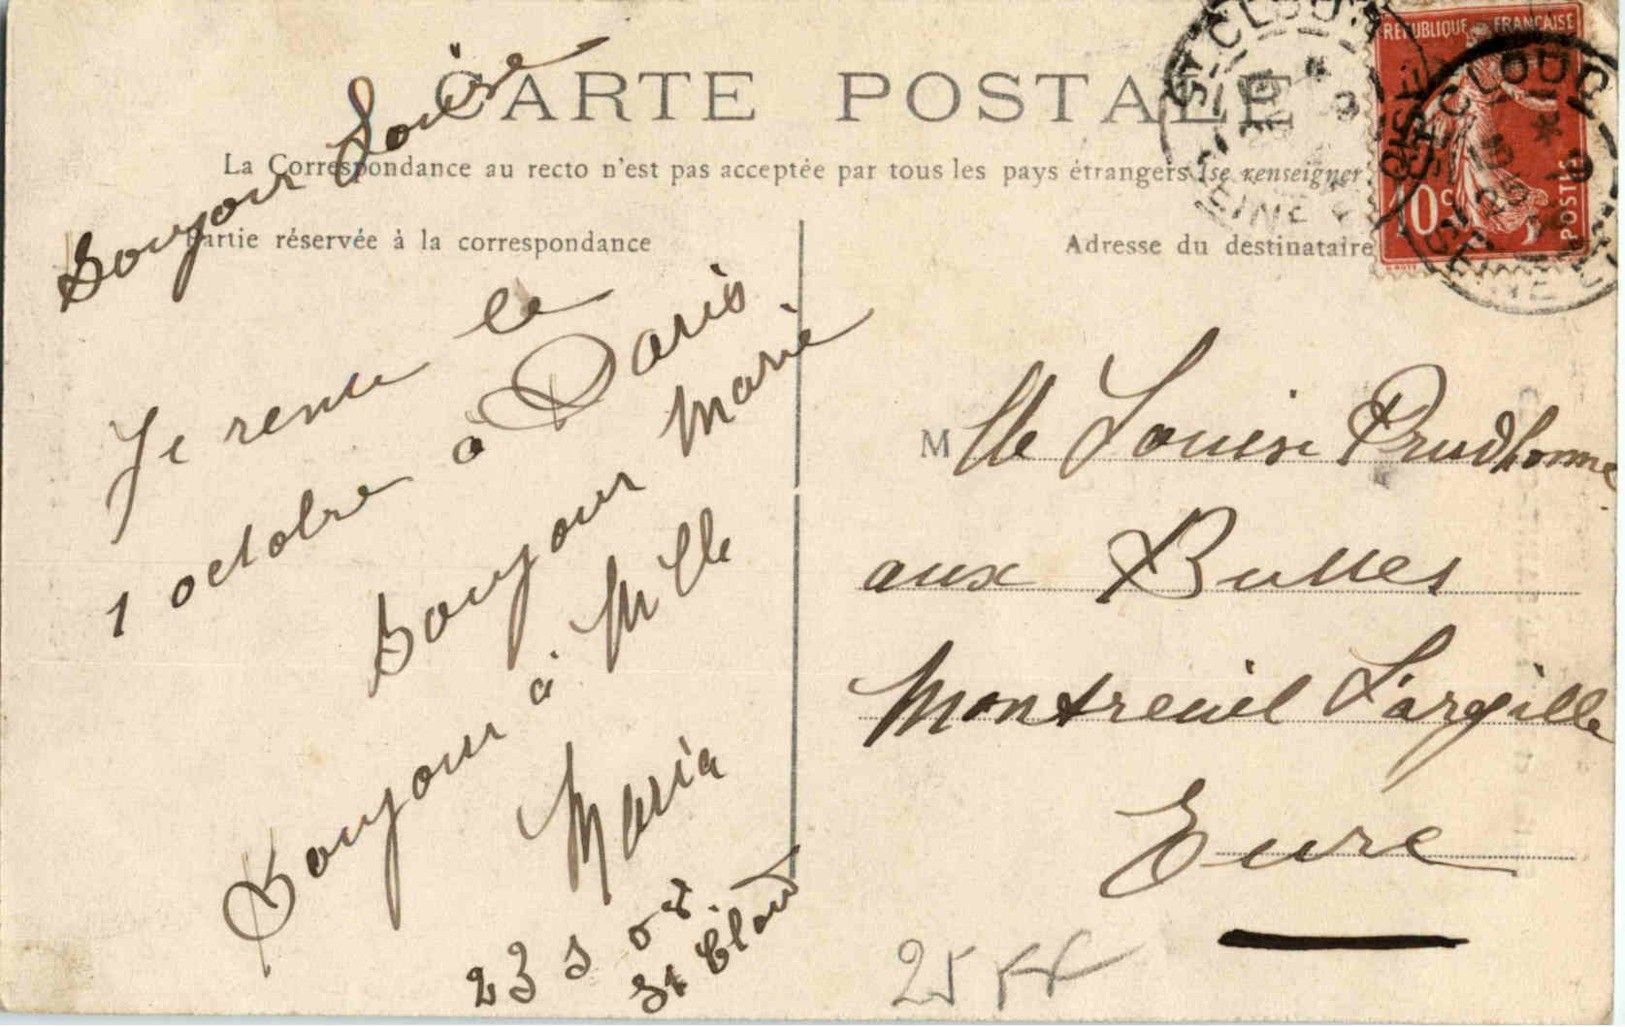 CARTE POSTALE
La Correspondance au recto n'est pas acceptée par tous les pays étrangers (se renseigner
Partie réservée à la correspondance
Adresse du destinataire
Bonjour Louise
Je rentre le
1 octobre à Paris
Bonjour Marie
Bonjour à Mlle
Maria
23 s 08
St Cloud
Mlle Louise Prudhomme
aux Buttes
Montreuil L'argille
Eure
25 FF
REPUBLIQUE FRANÇAISE
10c
POSTES
ST CLOUD
ST CLOUD